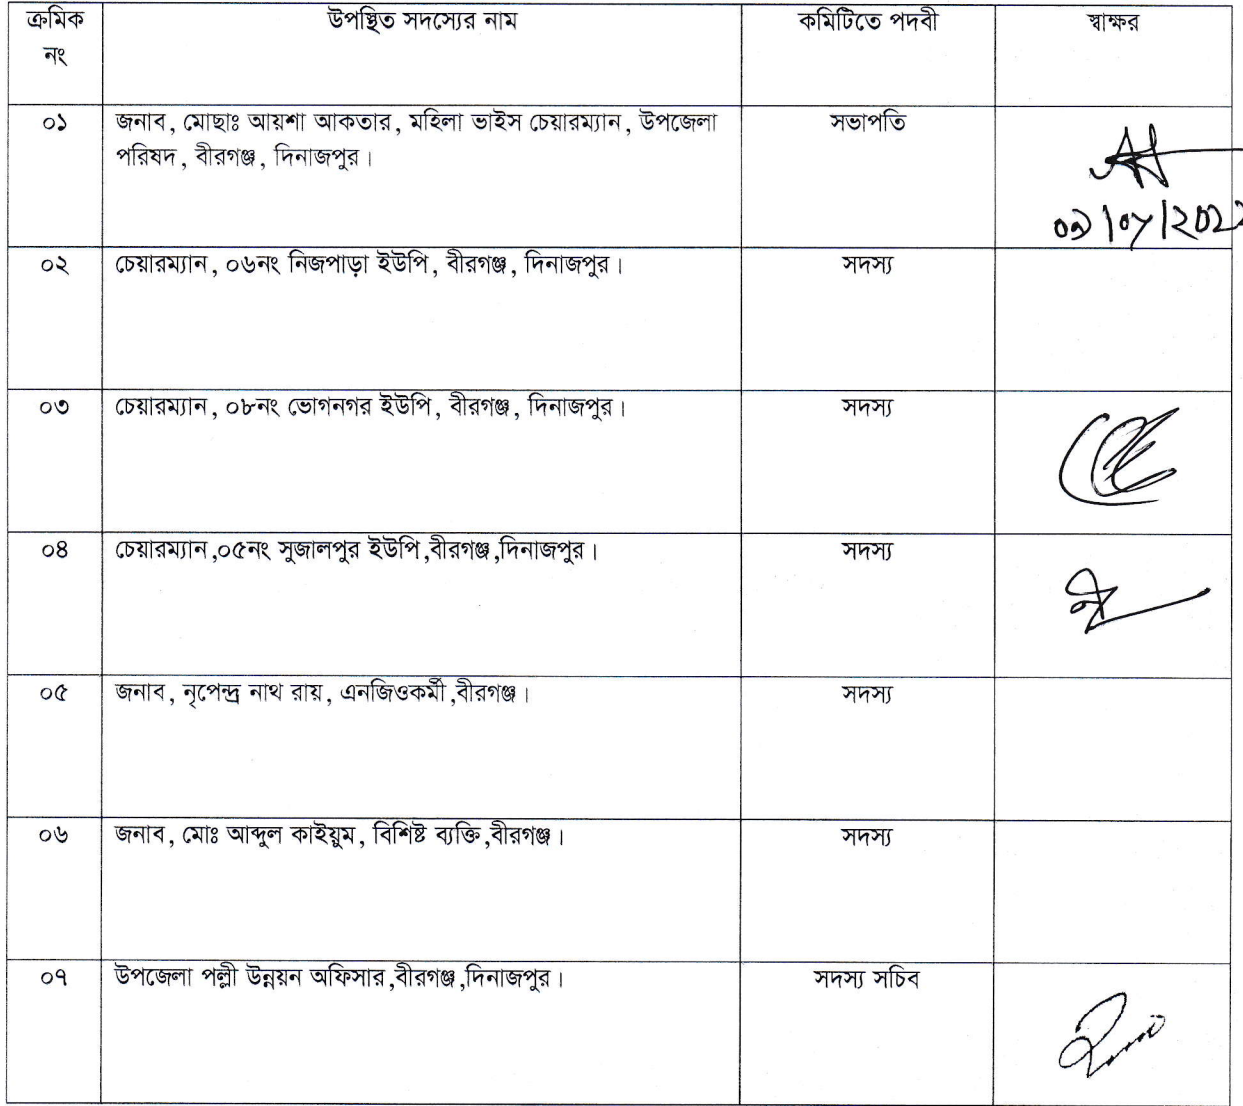 ক্রমিক নং উপস্থিত সদস্যের নাম কমিটিতে পদবী স্বাক্ষর
০১ জনাব, মোছাঃ আয়শা আকতার, মহিলা ভাইস চেয়ারম্যান, উপজেলা সভাপতি
পরিষদ, বীরগঞ্জ, দিনাজপুর।
০২ চেয়ারম্যান, ০৬নং নিজপাড়া ইউপি, বীরগঞ্জ, দিনাজপুর। সদস্য
০৩ চেয়ারম্যান, ০৮নং ভোগনগর ইউপি, বীরগঞ্জ, দিনাজপুর। সদস্য
০৪ চেয়ারম্যান,০৫নং সুজালপুর ইউপি,বীরগঞ্জ,দিনাজপুর। সদস্য
০৫ জনাব, নৃপেন্দ্র নাথ রায়, এনজিওকর্মী,বীরগঞ্জ। সদস্য
০৬ জনাব, মোঃ আব্দুল কাইয়ুম, বিশিষ্ট ব্যক্তি,বীরগঞ্জ। সদস্য
০৭ উপজেলা পল্লী উন্নয়ন অফিসার,বীরগঞ্জ,দিনাজপুর। সদস্য সচিব